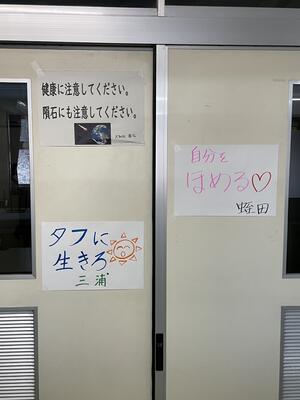 健康に注意してください。
隕石にも注意してください。
タフに
生きろ
三浦
自分を
ほめる♡
蛭田